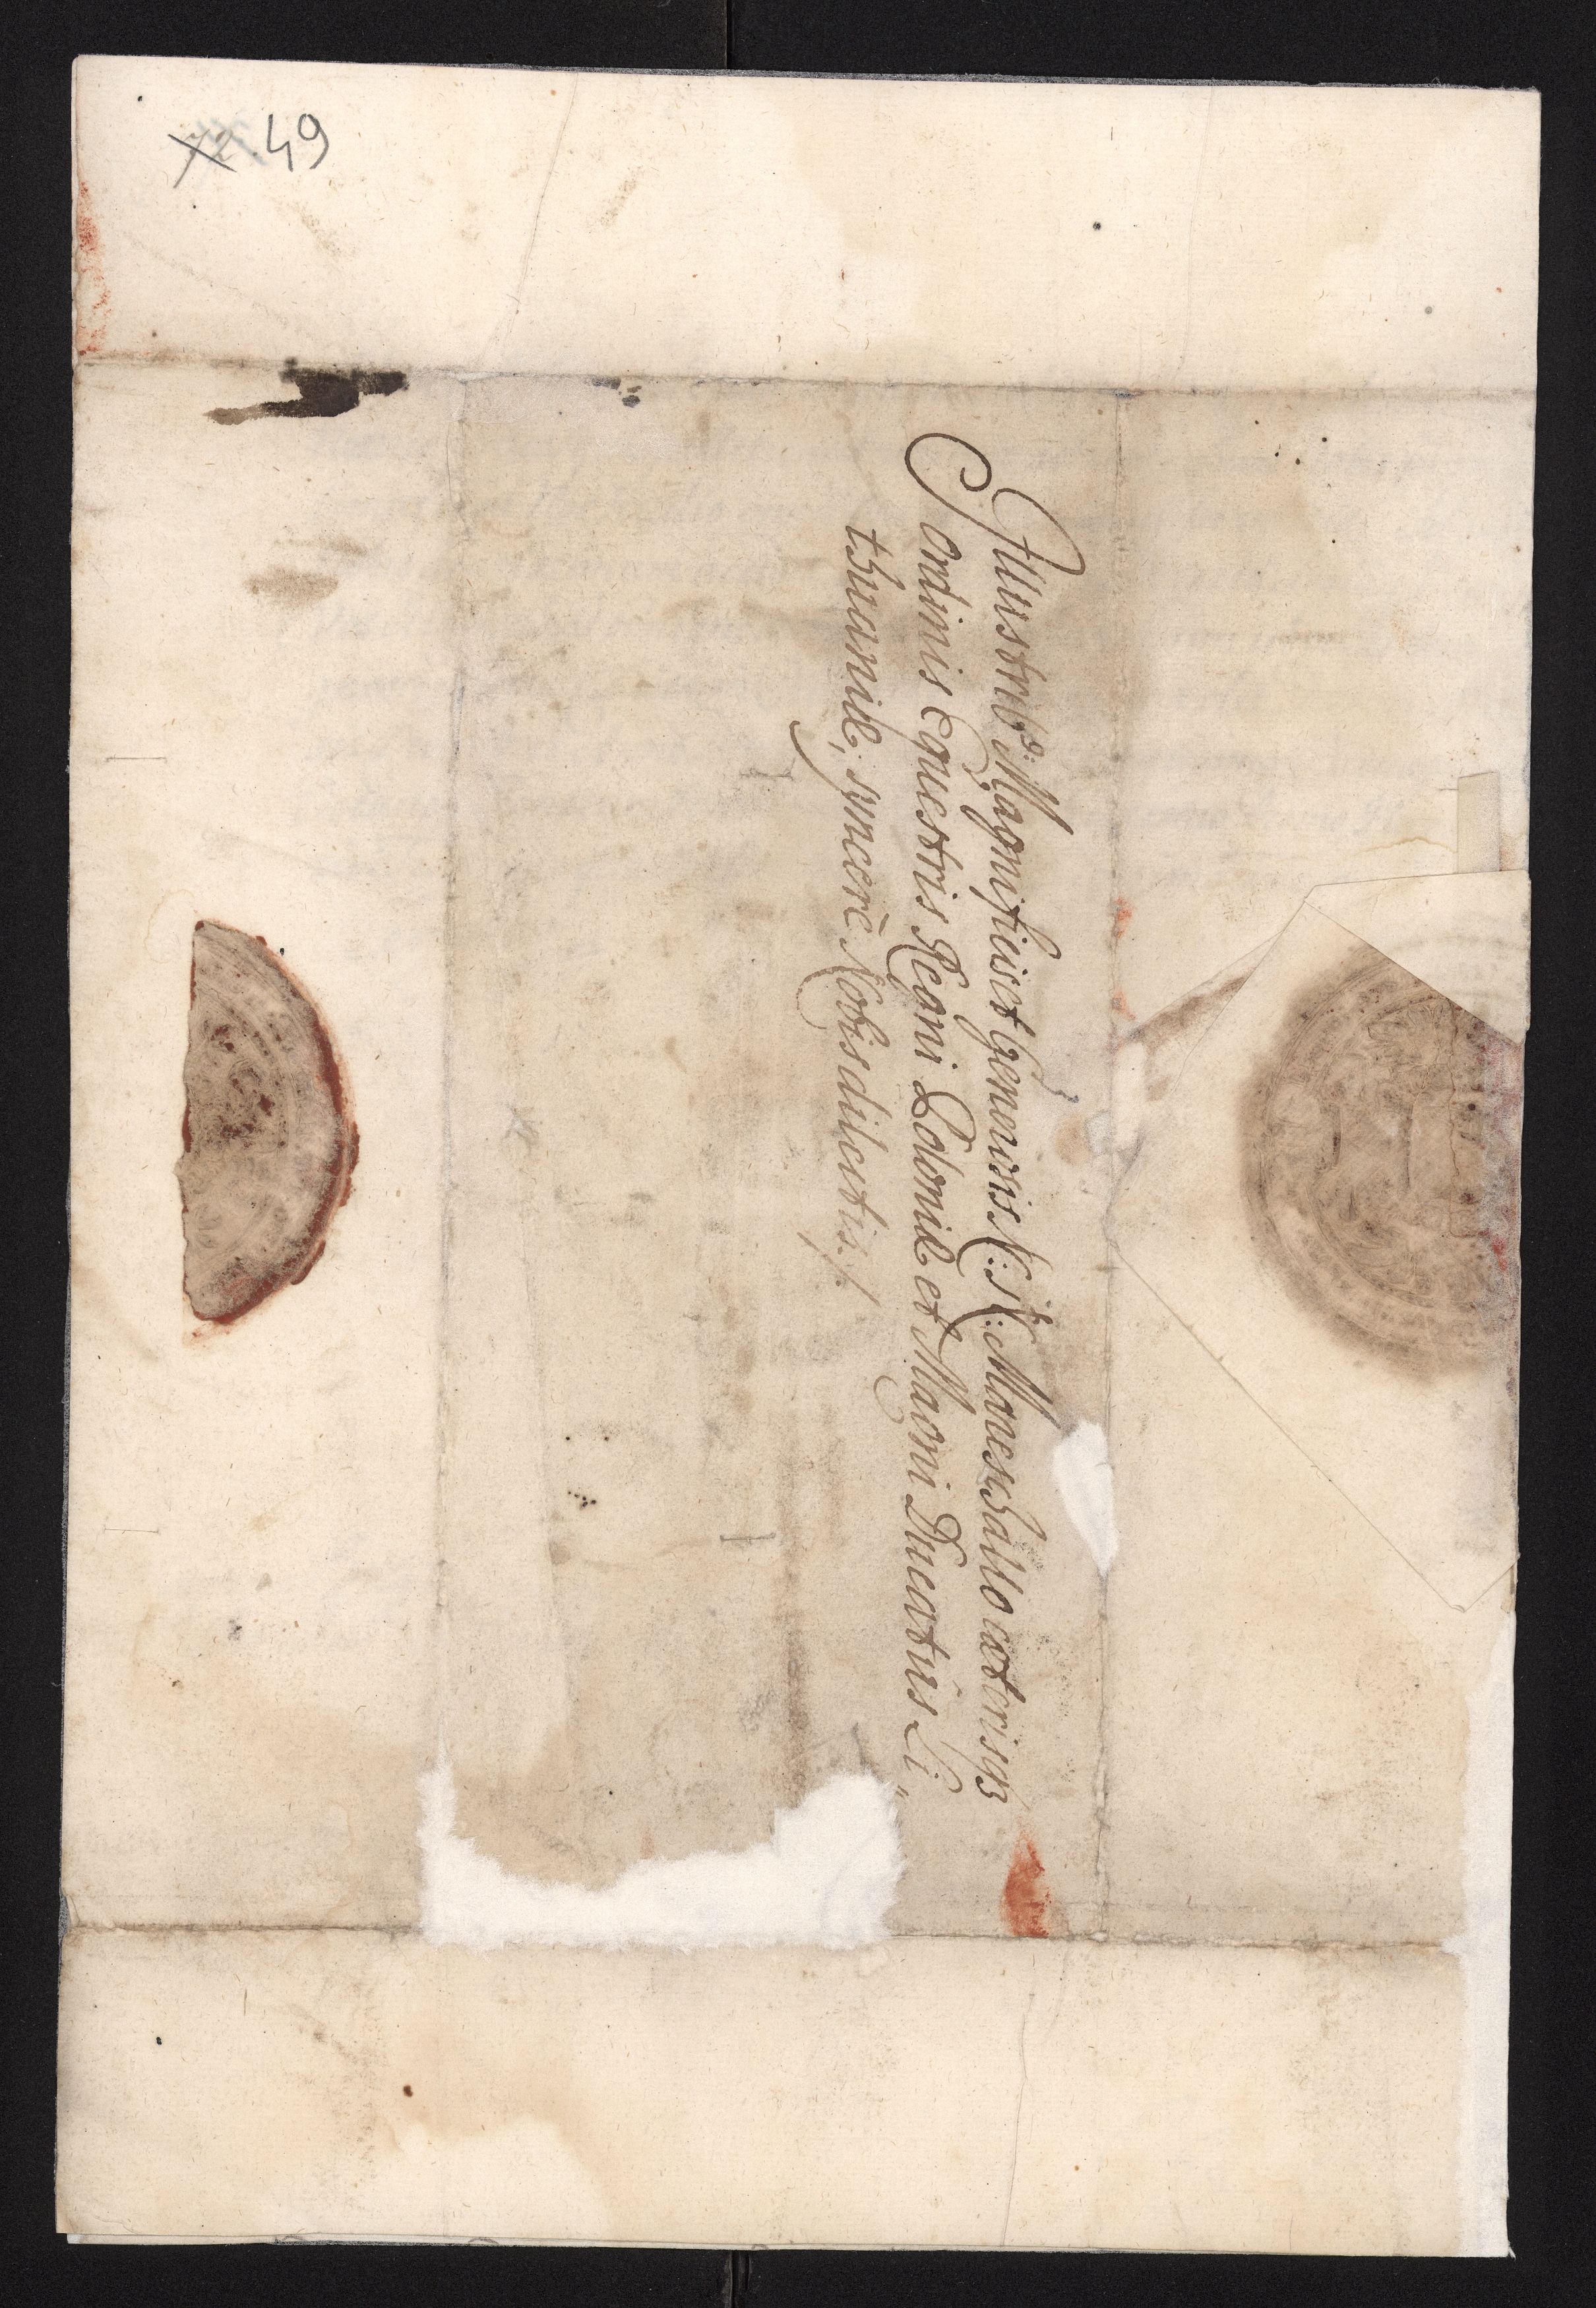 72. 49
Illustribꝰ: Magnificis et Generosis N: N: Maresch​allo cæterisqꝫ
Ordinis Equestris Regni Poloniæ et Magni Ducatus Li„
thuaniæ, syncerè Nobis dilectis./.